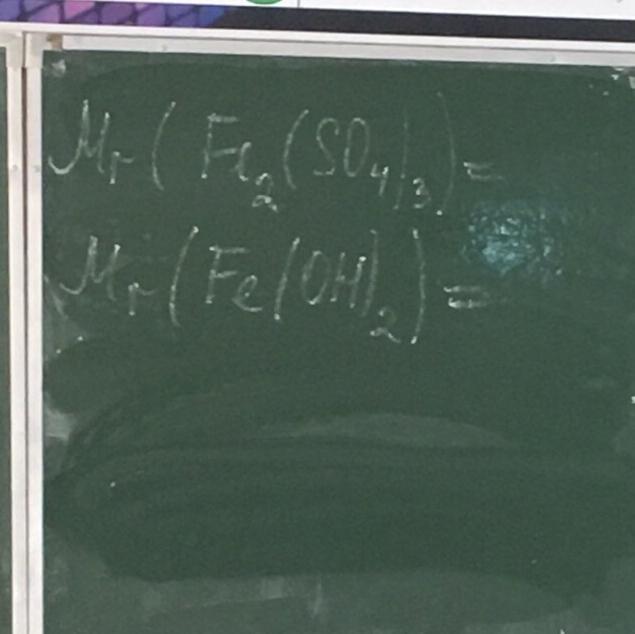 Mr(Fe₂(SO₄)₃)=
Mr(Fe(OH)₂)=